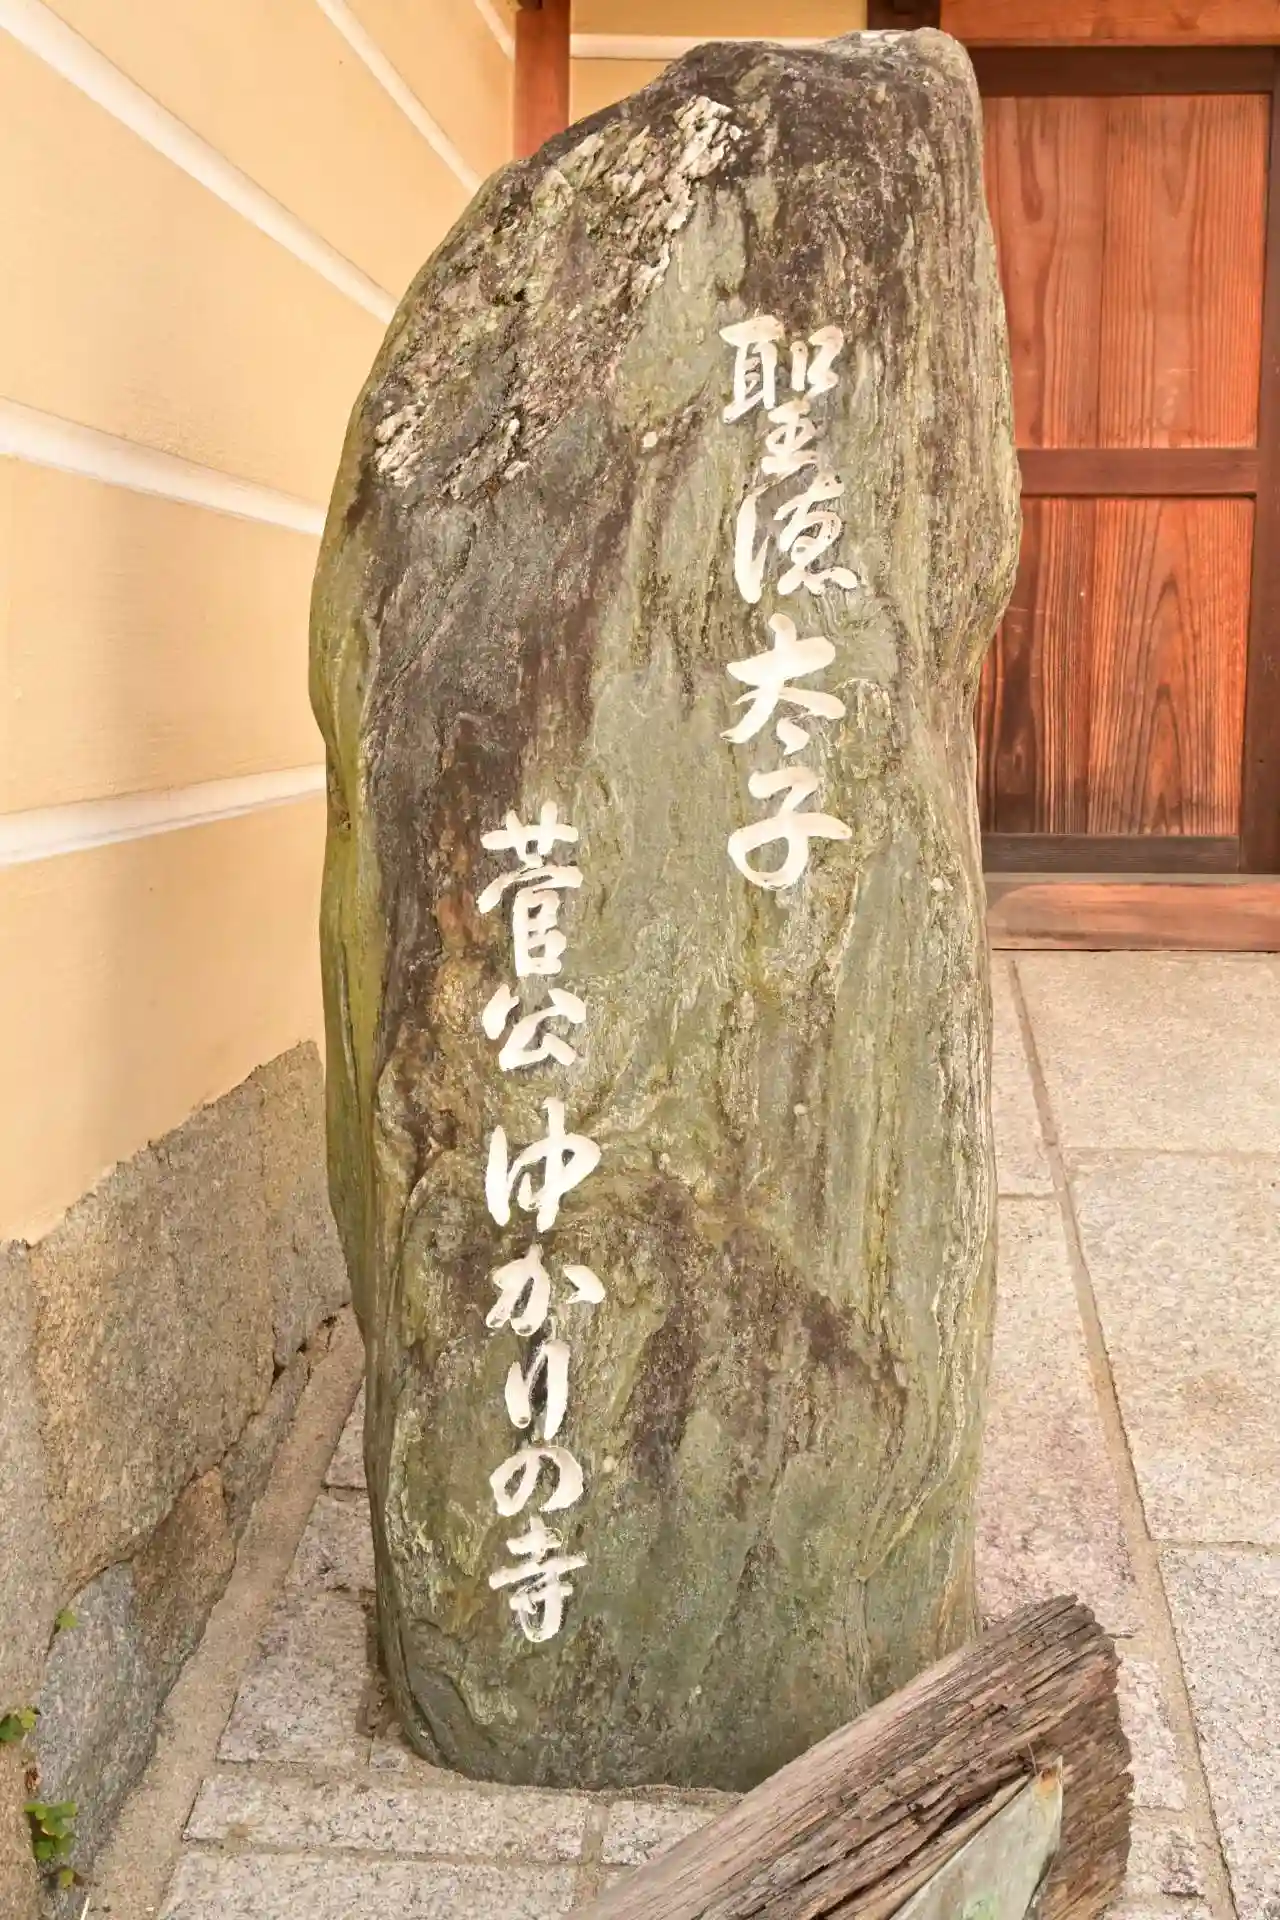 聖徳太子
菅公ゆかりの寺